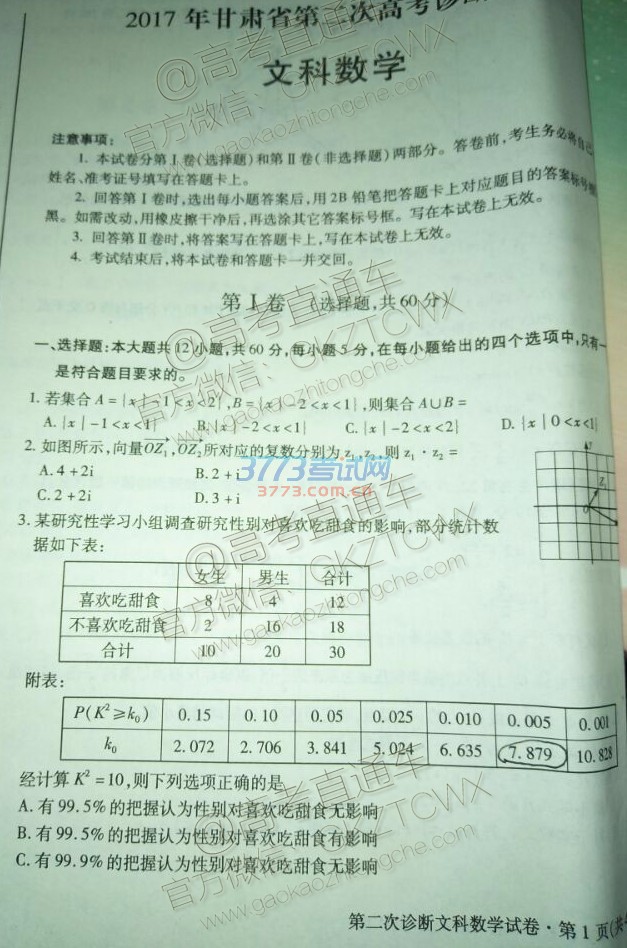 2017 年甘肃省第二次高考诊断
文科数学
注意事项:
1. 本试卷分第Ⅰ卷(选择题)和第Ⅱ卷(非选择题)两部分。答卷前,考生务必将自己
姓名、准考证号填写在答题卡上。
2. 回答第Ⅰ卷时,选出每小题答案后,用 2B 铅笔把答题卡上对应题目的答案标号
黑。如需改动,用橡皮擦干净后,再选涂其它答案标号框。写在本试卷上无效。
3. 回答第Ⅱ卷时,将答案写在答题卡上,写在本试卷上无效。
4. 考试结束后,将本试卷和答题卡一并交回。
第Ⅰ卷 (选择题,共 60 分)
一、选择题:本大题共 12 小题,共 60 分,每小题 5 分,在每小题给出的四个选项中,只有一
是符合题目要求的。
1. 若集合 A = {x | -1 < x < 2}, B = {x | -2 < x < 1}, 则集合 A∪B =
A. {x | -1 < x < 1} B. {x | -2 < x < 1} C. {x | -2 < x < 2} D. {x | 0 < x < 1}
2. 如图所示,向量OZ₁,OZ₂所对应的复数分别为 z₁,z₂,则 z₁ · z₂ =
A. 4 + 2i B. 2 + i
C. 2 + 2i D. 3 + i
y
Z₁
0
3. 某研究性学习小组调查研究性别对喜欢吃甜食的影响,部分统计数
据如下表:
女生 男生 合计
喜欢吃甜食 8 4 12
不喜欢吃甜食 2 16 18
合计 10 20 30
附表:
P(K²≥k₀) 0.15 0.10 0.05 0.025 0.010 0.005 0.001
k₀ 2.072 2.706 3.841 5.024 6.635 7.879 10.828
经计算 K² = 10,则下列选项正确的是
A. 有 99.5% 的把握认为性别对喜欢吃甜食无影响
B. 有 99.5% 的把握认为性别对喜欢吃甜食有影响
C. 有 99.9% 的把握认为性别对喜欢吃甜食无影响
第二次诊断文科数学试卷 · 第 1 页(共
@高考直通车
官方微信:GKZTCWX
www.gaokaozhitongche.com
@高考直通车
官方微信:GKZTCWX
www.gaokaozhitongche.com
3773考试网
3773.com.cn
@高考直通车
官方微信:GKZTCWX
www.gaokaozhitongche.com
@高考直通车
官方微信:GKZTCWX
www.gaokaozhitongche.com